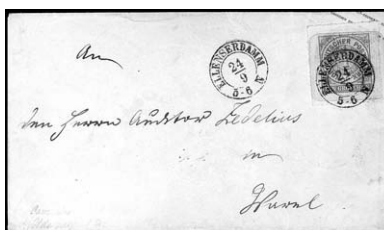 An
ELLENSERDAMM
24
9
5-6
ELLENSERDAMM
24
9
5-6
den Herrn Auditor Zedelius
in
Varel